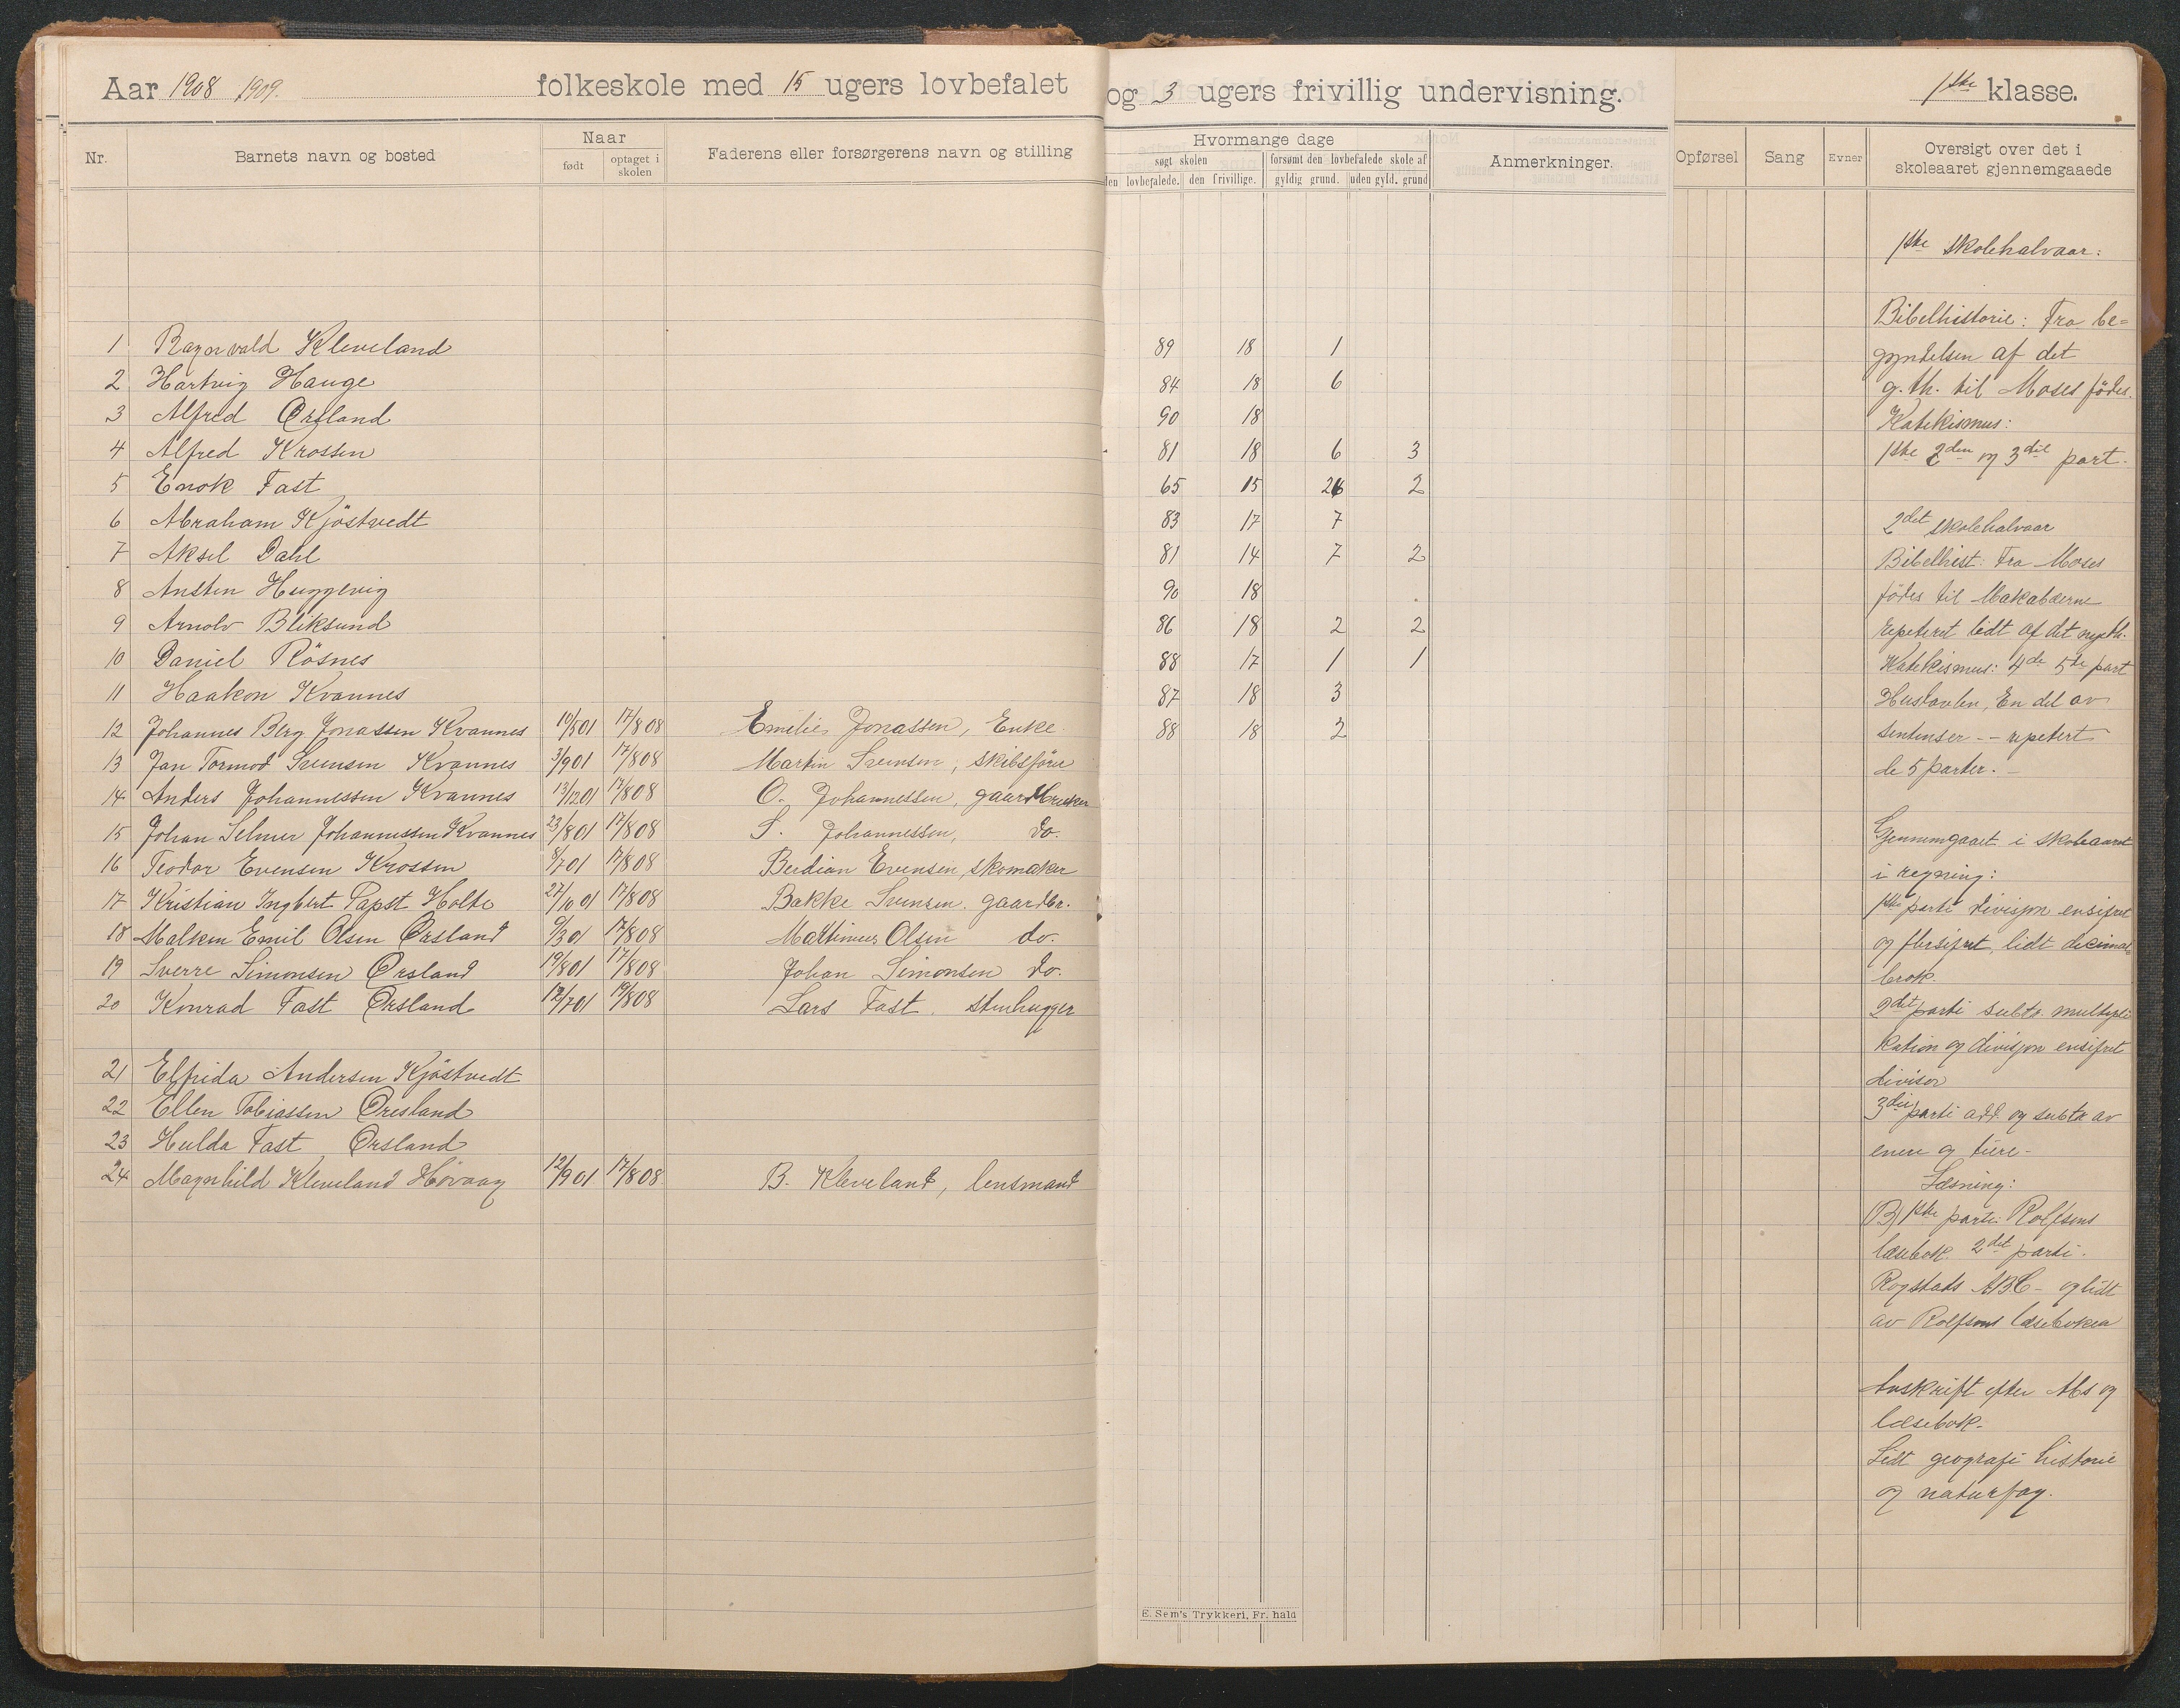 Aar 1908 1909. folkeskole med 15 ugers lovbefalet og 3 ugers frivillig undervisning. 1ste klasse.
Nr. Barnets navn og bosted Naar født optaget i skolen Faderens eller forsørgerens navn og stilling
Hvormange dage søgt skolen den lovbefalede. den frivillige. forsømt den lovbefalede skole af gyldig grund. uden gyld. grund Anmerkninger.
Opførsel Sang Evner Oversigt over det i skoleaaret gjennemgaaede
1 Ragnvald Kleveland 89 18 1
2 Hartvig Hauge 84 18 6
3 Alfred Ørsland 90 18
4 Alfred Krossen 81 18 6 3
5 Enok Fast 65 15 26 2
6 Abraham Kjöstvedt 83 17 7
7 Aksel Dahl 81 14 7 2
8 Ansten Heggevig 90 18
9 Arnolv Bliksund 86 18 2 2
10 Daniel Rösnes 88 17 1 1
11 Haakon Kvannes 87 18 3
12 Johannes Berg Jonassen Kvannes 10/501 17/808 Emilie Jonassen, Enke 88 18 2
13 Jan Tormod Svensen Kvannes 3/901 17/808 Martin Svensen, skibsfører
14 Anders Johannessen Kvannes 13/1201 17/808 O. Johannessen, gaardbruker
15 Johan Selmer Johannessen Kvannes 23/801 17/808 S. Johannessen, do.
16 Teodor Evensen Krossen 8/701 17/808 Berdian Evensen, skomaker
17 Kristian Ingbert Papst Holte 27/1001 17/808 Bakke Svensen. gaardbr.
18 Malken Emil Olsen Ørsland 9/301 17/808 Mathinius Olsen do.
19 Sverre Simonsen Ørsland 19/801 17/808 Johan Simonsen do.
20 Konrad Fast Ørsland 12/701 19/808 Lars Fast. stenhugger
21 Elfrida Andersen Kjöstvedt
22 Ellen Tobiassen Øresland
23 Hulda Fast Ørsland
24 Magnhild Kleveland Høvaag 12/901 17/808 B. Kleveland, lensmand
1ste skolehalvaar:
Bibelhistorie: Fra be=
gyndelsen af det
g. th. til Moses födes.
Katekismus:
1ste 2den og 3die part.
2det skolehalvaar
Bibelhist: Fra Moses
födes til Makabæerne
repeteret lidt af det nye th.
Katekismus: 4de 5te part
Hustavlen, En del av
sentenser -- repetert
de 5 parter. -
Gjennemgaaet i skoleaaret
i regning:
1ste parti divisjon ensifret
og flersifret, lidt decimal=
brøk.
2det parti subtr. multipli
kation og divisjon ensifret
divisor
3die parti add. og subtr av
enere og tiere -
Læsning:
B) 1ste parti: Rolfsens
læsebok. 2det parti.
Rogstads ABC - og lidt
av Rolfsens læsebøker
Avskrift efter Abs og
læsebok.
Lidt geografi historie
og naturfag.
E. Sem's Trykkeri, Fr. hald